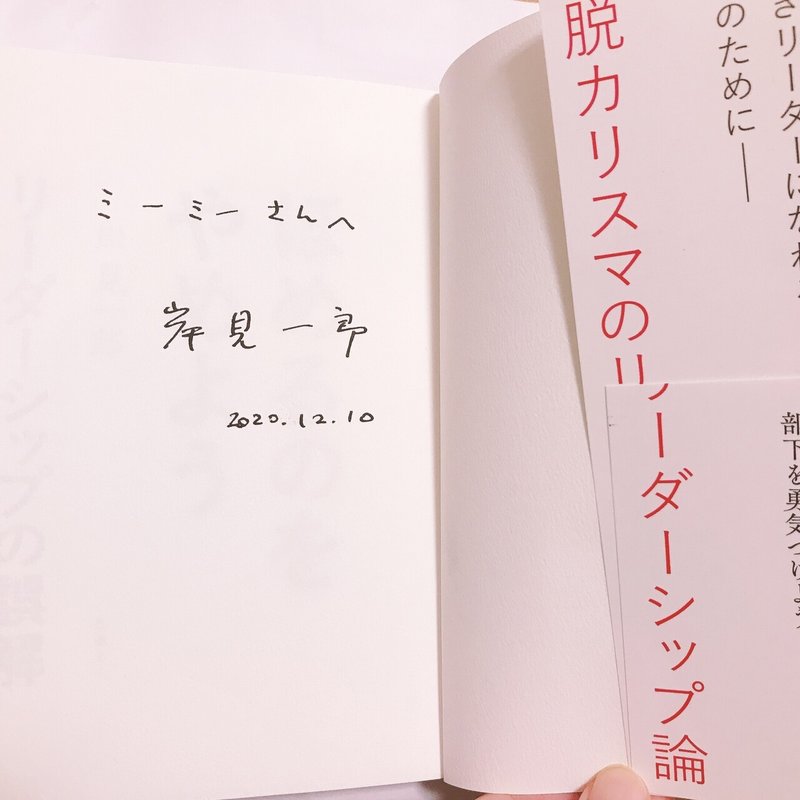 ミーミーさんへ
岸見一郎
2020.12.10
のために──
脱カリスマのリーダーシップ論
部下を勇気づけ